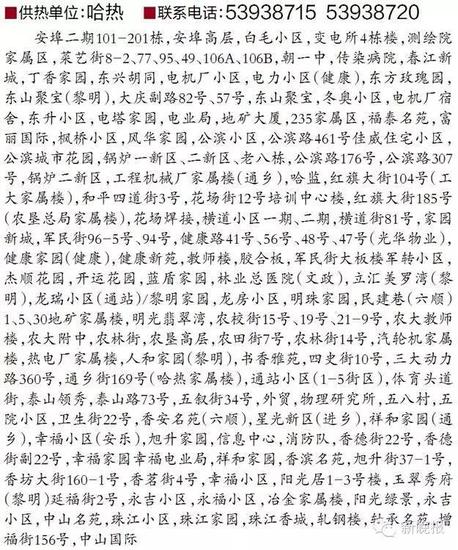 ■供热单位:哈热 ■联系电话:53938715 53938720
安埠二期101-201栋,安埠高层,白毛小区,变电所4栋楼,测绘院
家属区,菜艺街8-2、77、95、49、106A、106B,朝一中,传染病院,春江新
城,丁香家园,东兴胡同,电机厂小区,电力小区(健康),东方玫瑰园,
东山聚宝(黎明),大庆副路82号、57号,东山聚宝,冬奥小区,电机厂宿
舍,东升小区,电塔家园,电业局,地矿大厦,235家属区,福泰名苑,富
丽国际,枫桥小区,风华家园,公滨小区,公滨路461号佳威住宅小区,
公滨城市花园,锅炉一新区、二新区、老八栋,公滨路176号,公滨路307
号,锅炉二新区,工程机械厂家属楼(通乡),哈监,红旗大街104号(工
大家属楼),和平四道街3号,花场街12号培训中心楼,红旗大街185号
(农垦总局家属楼),花场焊接,横道小区一期、二期,横道街81号,家园
新城,军民街96-5号、94号,健康路41号、56号、48号、47号(光华物业),
健康家园(健康),健康新苑,教师楼,胶合板,军民街大板楼军转小区,
杰顺花园,开运花园,蓝盾家园,林业总医院(文政),立汇美罗湾(黎
明),龙瑞小区(通站)/黎明家园,龙房小区,明珠家园,民建巷(六顺)
1、5、30地矿家属楼,明光翡翠湾,农校街15号、19号、21-9号,农大教师
楼,农大附中,农林街,农垦高层,农田街7号,农林街14号,汽轮机家属
楼,热电厂家属楼,人和家园(黎明),书香雅苑,四史街10号,三大动力
路360号,通乡街169号(哈热家属楼),通站小区(1-5街区),体育头道
街,泰山领秀,泰山路73号,五叙街34号,外贸,物理研究所,五八村,五
院小区,卫生街22号,香安名苑(六顺),星光新区(进乡),祥和家园(通
乡),幸福小区(安乐),旭升家园,信息中心,消防队,香德街22号,香德
街副22号,幸福家园幸福电业局,祥和家园,香滨名苑,旭升街37-1号,
香坊大街160-1号,香茗街4号,幸福小区,阳光居1-3号楼,玉翠秀府
(黎明)延福街2号,永吉小区,永福小区,冶金家属楼,阳光绿景,永吉
小区,中山名苑,珠江小区,珠江家园,珠江香城,轧钢楼,轩承名苑,增
福街156号,中山国际
新晚报